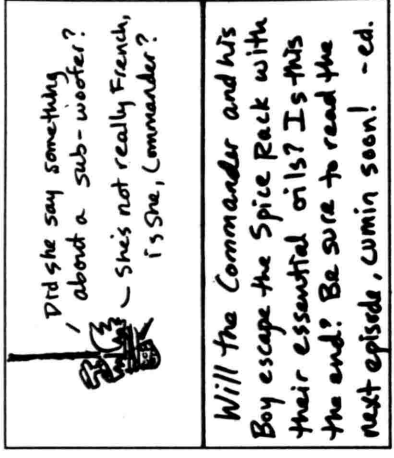 Did she say something
about a sub-woofer?
She's not really French,
is she, Commander?
Will the Commander and his
Boy escape the Spice Rack with
their essential oils? Is this
the end? Be sure to read the
next episode, cumin soon! -ed.